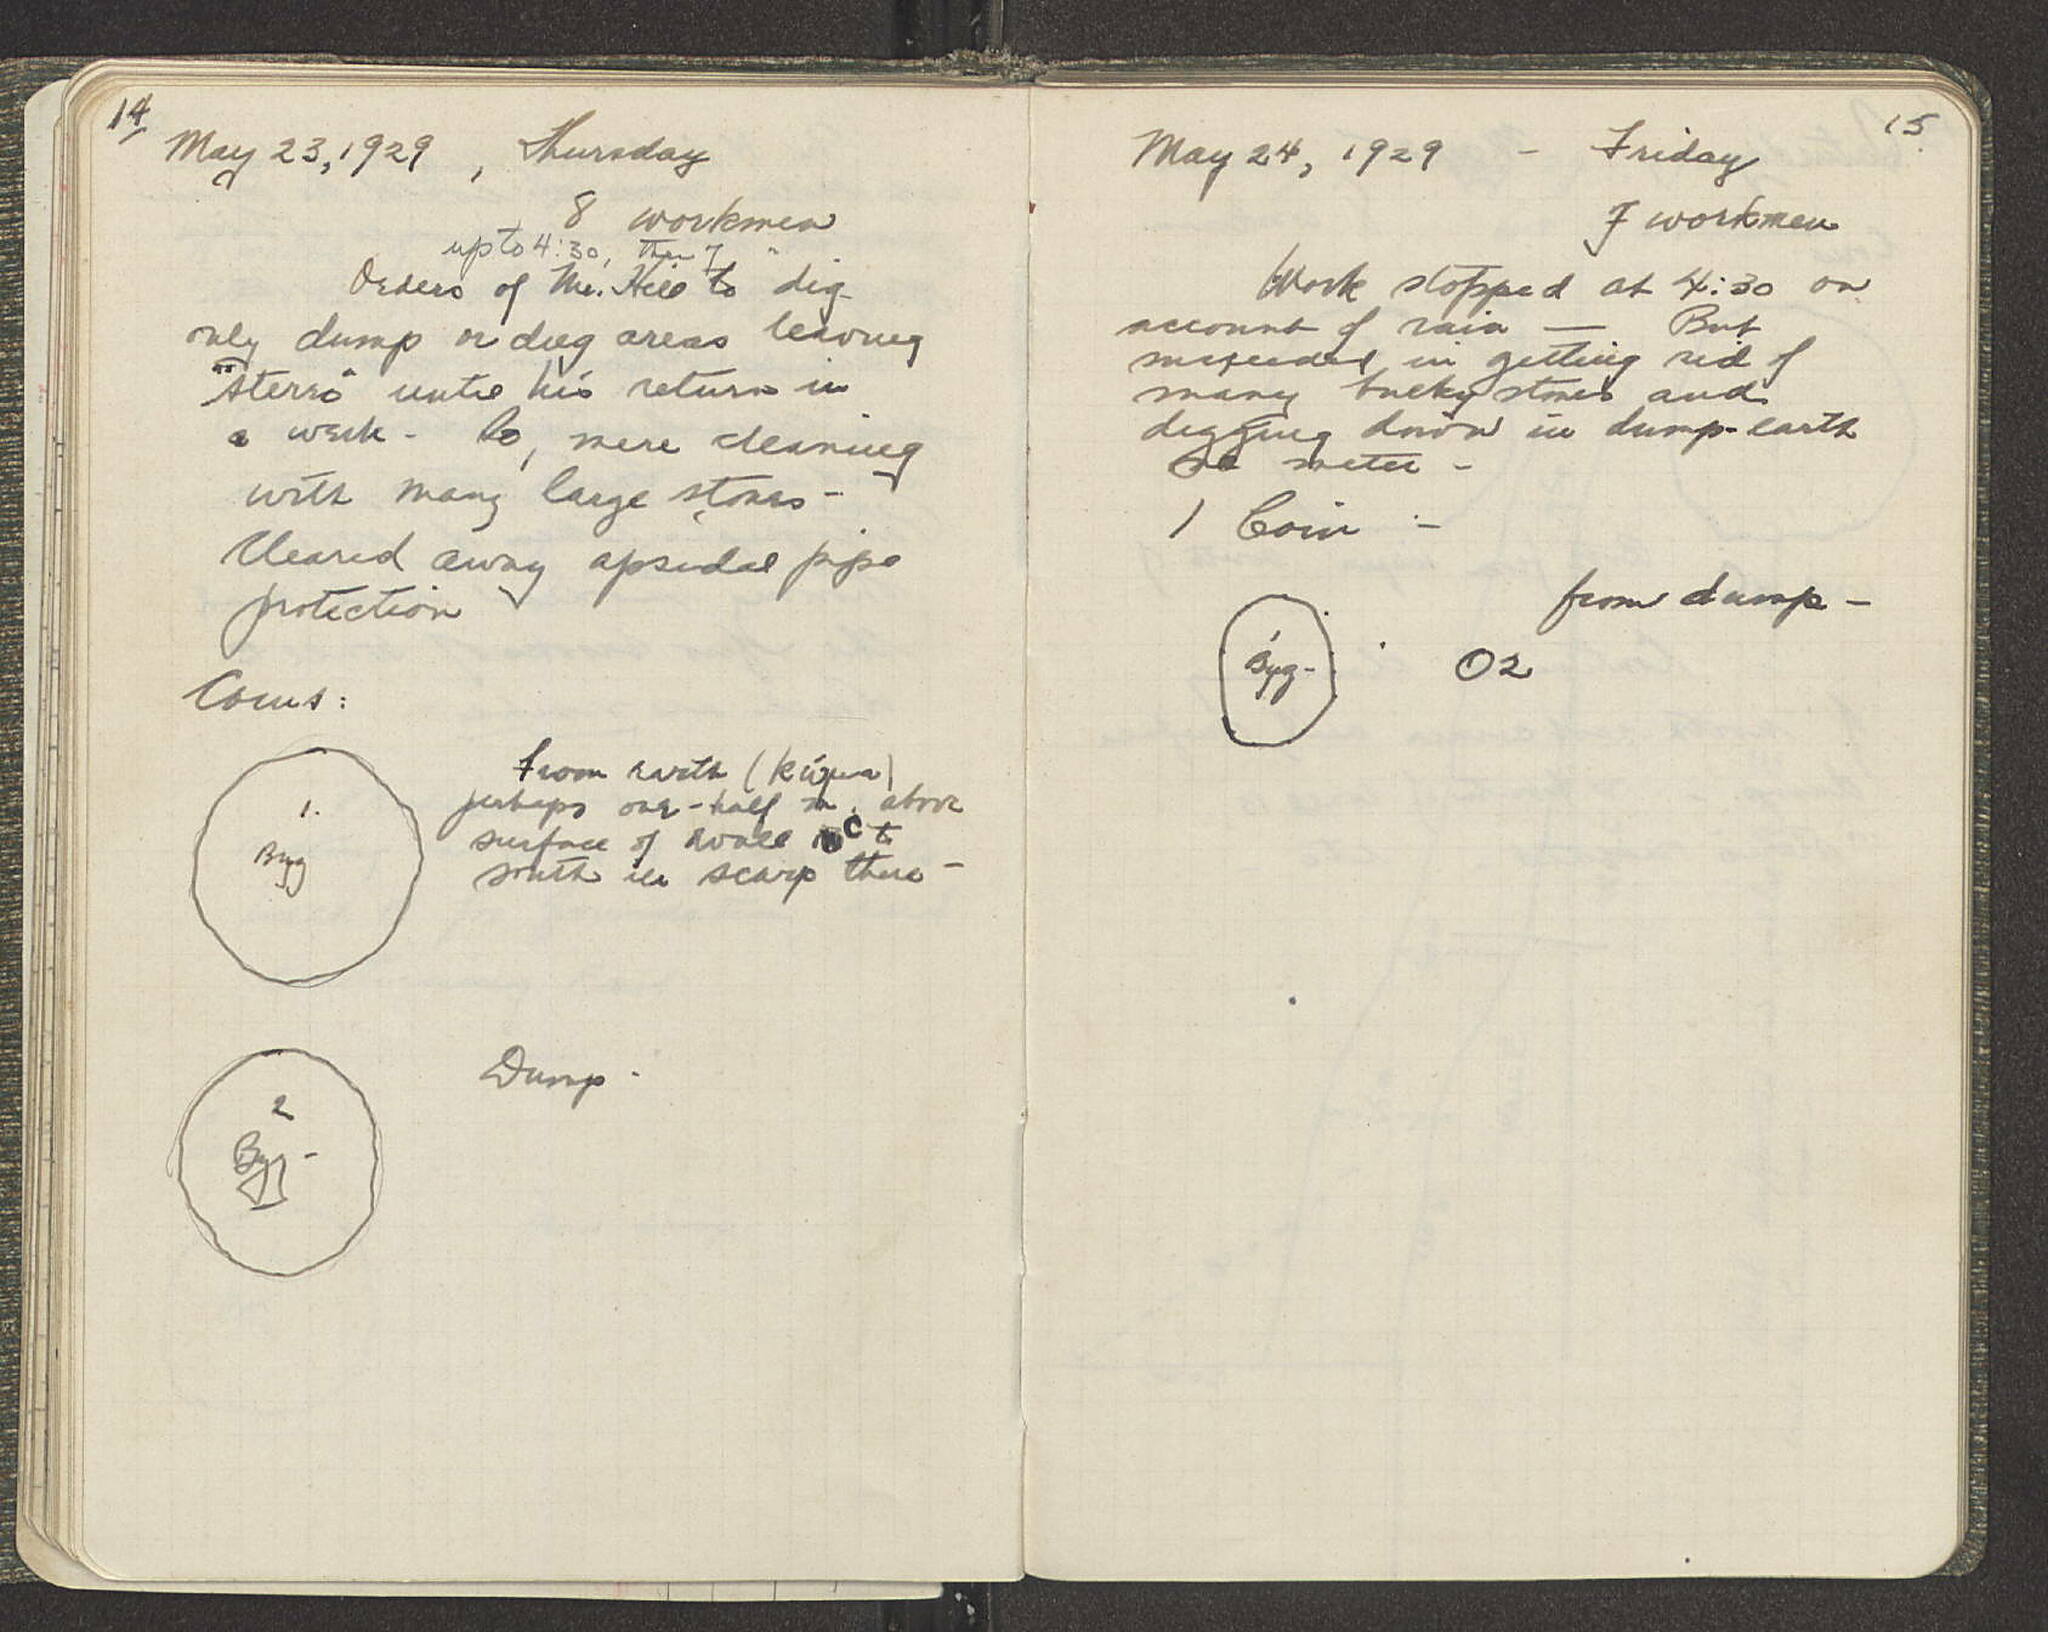 14
May 23, 1929, Thursday
8 workmen
up to 4:30, then 7 "
Orders of Mr. Hill to dig
only dump or dug areas leaving
"sterro" until his return in
a week - So, mere cleaning
with many large stones -
Cleared away apsidal pipe
protection
Coins:
1.
Byz
From earth (
perhaps one-half m. above
surface of wall
south in scarp there -
2
Byz -
Dump -
15
May 24, 1929 - Friday
7 workmen
Work stopped at 4:30 on
account of rain — But
succeeded in getting rid of
many bulky stones and
digging down in dump-earth
one meter -
1 Coin -
from dump -
1
Byz -
O2